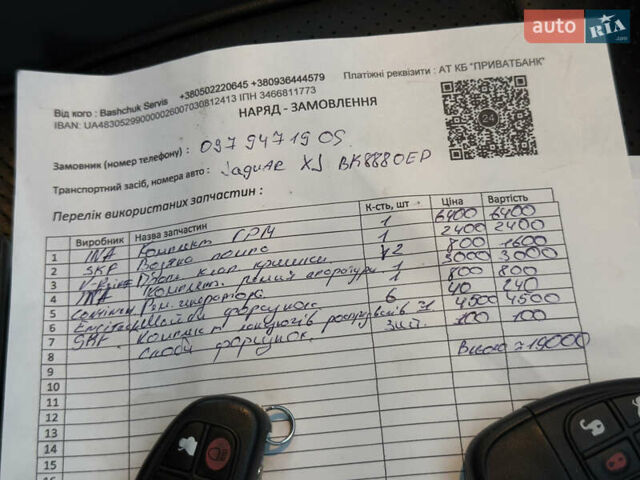 auto RIA.com
Від кого : Bashchuk Servis +380502220645 +380936444579 Платіжні реквізити : АТ КБ "ПРИВАТБАНК"
IBAN: UA483052990000026007030812413 ІПН 3466811773
НАРЯД - ЗАМОВЛЕННЯ
24
Замовник (номер телефону) : 097 947 19 05
Транспортний засіб, номера авто : Jaguar XJ BK8880EP
Перелік використаних запчастин :
Виробник Назва запчастин К-сть, шт Ціна Вартість
1 INA Комплект ГРМ 1 6400 6400
2 SKF Водяна помпа 1 2400 2400
3 Прокл клап кришки x2 800 1600
4 INA Комплект. ремня апаратури 1 3000 3000
5 Рем. 1 800 800
6 Шайби форсунок 6 40 240
7 SKF Комплект розпредвалів 4500 4500
8 Скоби форсунок. 3шт. 100 100
9 Всього = 19000
10
11
12
13
14
15
16